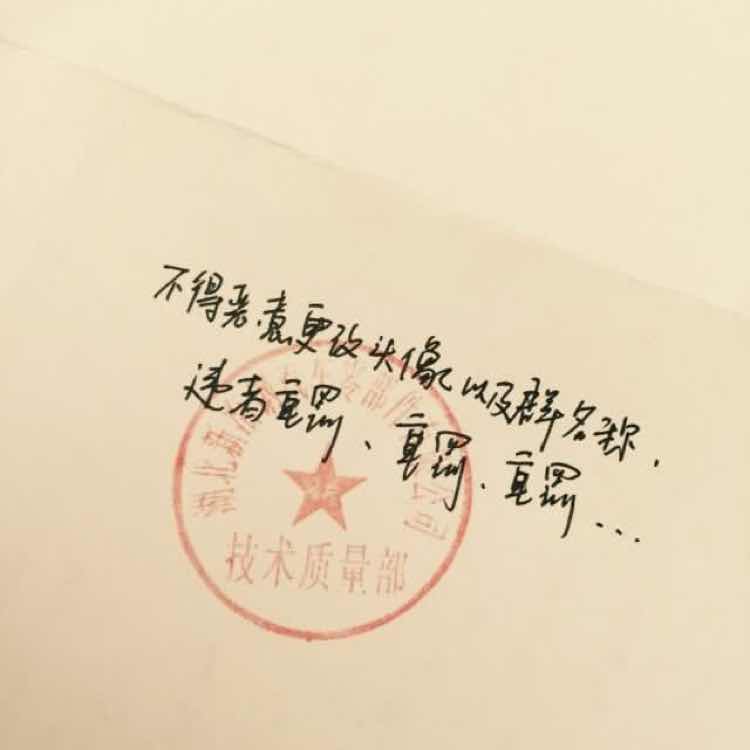 不得恶意更改头像以及群名称,
违者重罚、重罚、重罚...
技术质量部